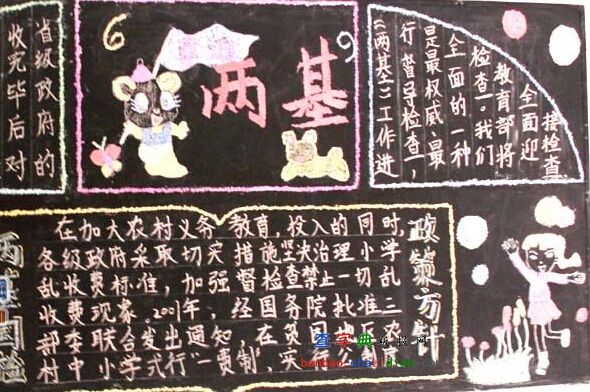 省级政府的
收完毕后对
6
9
两基
接检查
全面迎
教育部将
检查。我们
全面的一种
是最权威、最
行督导检查,
《两基》工作进
政策方针
在加大农村义务教育,投入的同时,
各级政府采取切实措施坚决治理小学
乱收费标准,加强督检查禁止一切乱
收费现象。2001年,经国务院批准三
部委联合发出通知,在贫 农
村中小学式行“一费制”,实行公
两基国
查字典